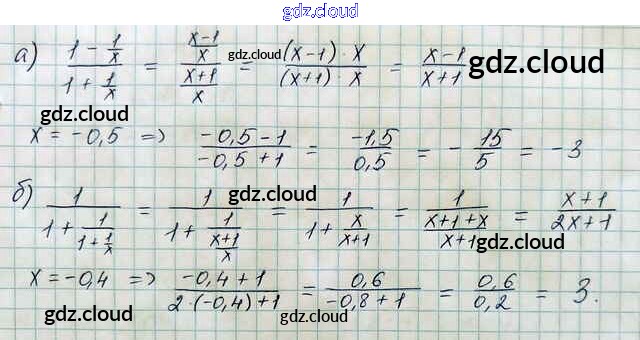 gdz.cloud
а) (1 - 1/x)/(1 + 1/x) = ((x-1)/x)/((x+1)/x) = ((x-1)·x)/((x+1)·x) = (x-1)/(x+1)
gdz.cloud gdz.cloud
gdz.cloud
x = -0,5 => (-0,5-1)/(-0,5+1) = (-1,5)/(0,5) = - 15/5 = -3
gdz.cloud
б) 1/(1 + 1/(1 + 1/x)) = 1/(1 + 1/((x+1)/x)) = 1/(1 + x/(x+1)) = 1/((x+1+x)/(x+1)) = (x+1)/(2x+1)
gdz.cloud
gdz.cloud
x = -0,4 => (-0,4+1)/(2·(-0,4)+1) = (0,6)/(-0,8+1) = (0,6)/(0,2) = 3.
gdz.cloud gdz.cloud gdz.cloud